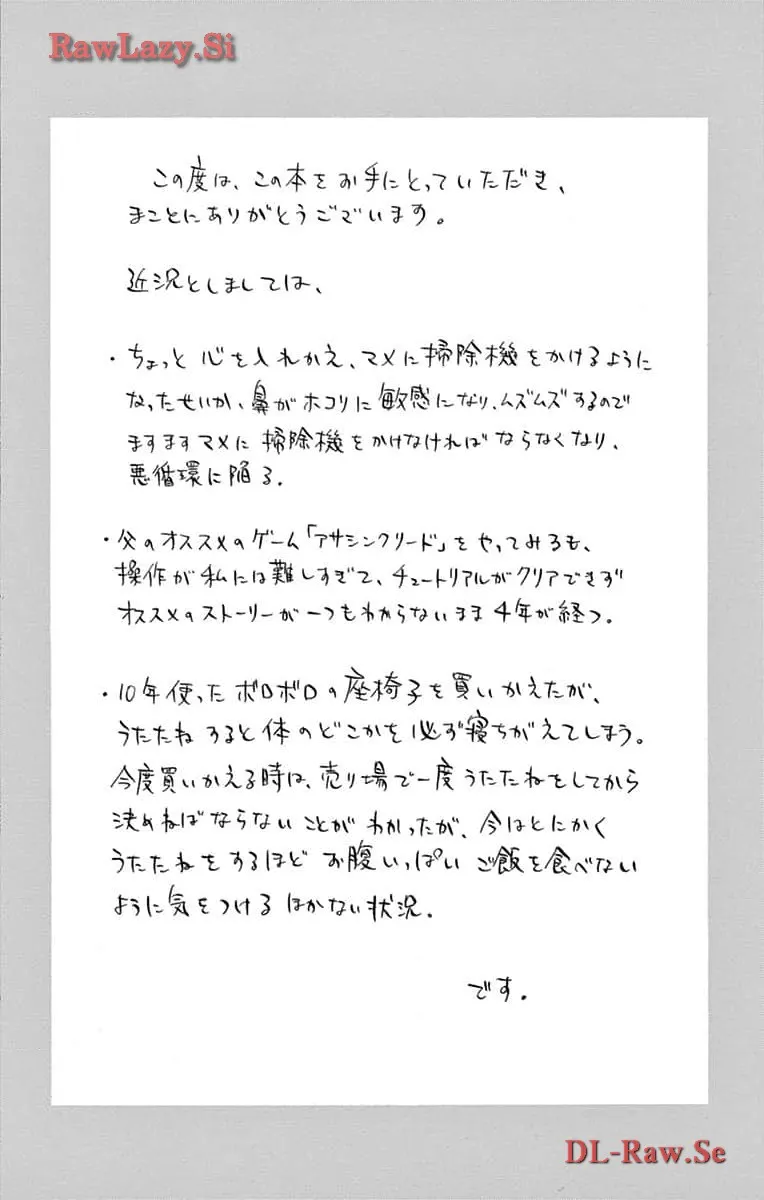 RawLazy.Si
この度は、この本をお手にとっていただき、
まことにありがとうございます。
近況としましては、
・ちょっと心を入れかえ、マメに掃除機をかけるように
なったせいか、鼻がホコリに敏感になり、ムズムズするので
ますますマメに掃除機をかけなければならなくなり、
悪循環に陥る。
・父のオススメのゲーム「アサシンクリード」をやってみるも、
操作が私には難しすぎて、チュートリアルがクリアできず
オススメのストーリーが一つもわからないまま4年が経つ。
・10年使ったボロボロの座椅子を買いかえたが、
うたたねすると体のどこかを必ず寝ちがえてしまう。
今度買いかえる時は、売り場で一度うたたねをしてから
決めねばならないことがわかったが、今はとにかく
うたたねをするほどお腹いっぱいご飯を食べない
ように気をつけるほかない状況。
です。
DL-Raw.Se